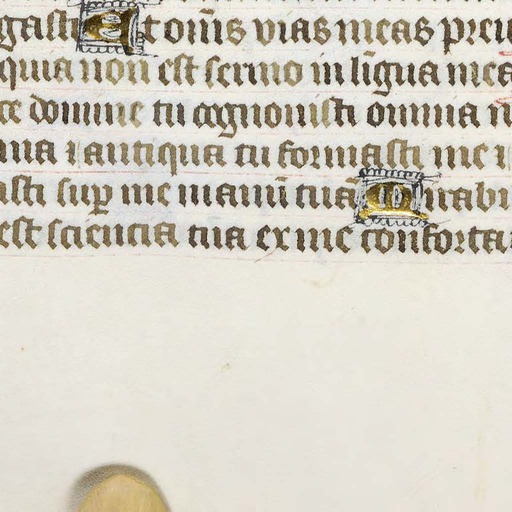 gasti Et om̄s vias meas previ
quia non est sermo in līgua mea
ce domine tu cognouisti omnia n
ma ⁊ antiqua tu formasti me ⁊
asti suꝑ me manū tua Mirabi
est sciencia tua ex me confortat